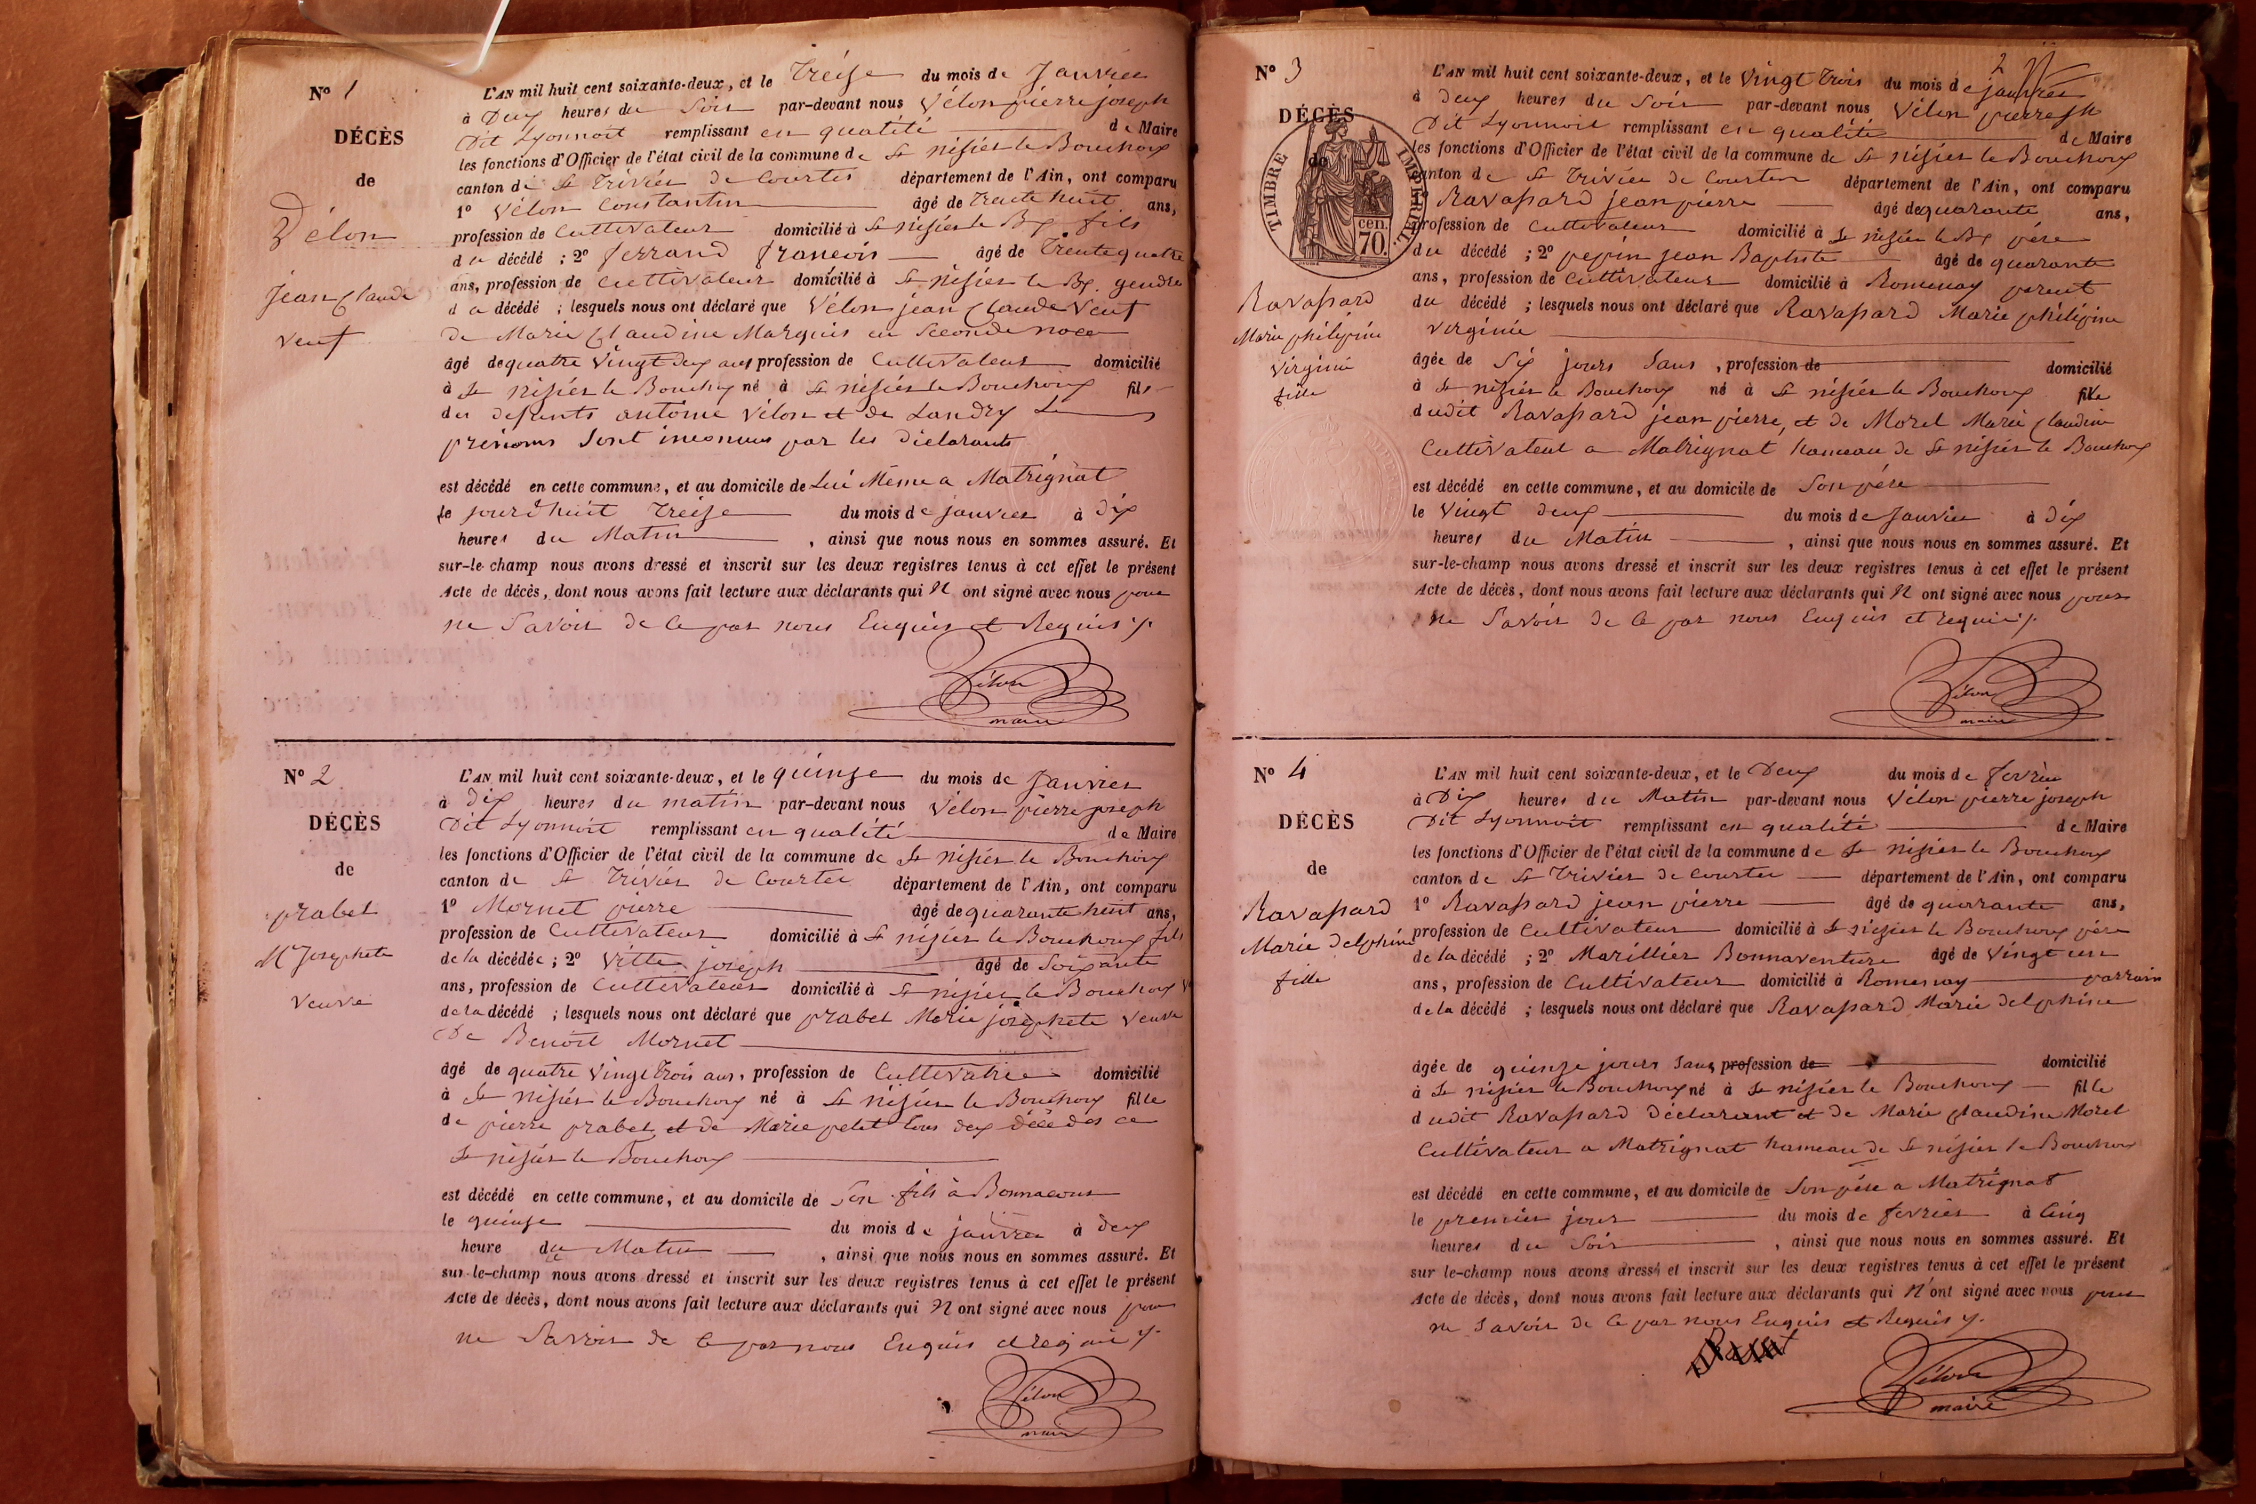 N° 1
DÉCÈS
de
Vélon
Jean Claude
veuf
L'AN mil huit cent soixante-deux, et le Treize du mois de Janvier
à Deux heures du Soir par-devant nous Vélon pierre joseph
Dit Lyonnoit remplissant en qualité de Maire
les fonctions d'Officier de l'état civil de la commune de St nisier le Bouchoux
canton de St Trivier de Courtes département de l'Ain, ont comparu
1° Vélon Constantin âgé de Trante huit ans,
profession de Cultivateur domicilié à St nisier le Bx fils
du décédé ; 2° ferrand françois âgé de Trente quatre
ans, profession de Cultivateur domicilié à St nisier le Bx. gendre
du décédé ; lesquels nous ont déclaré que Vélon jean Claude Veuf
de Marie Claudine Marquis en Seconde noce
âgé de quatre Vingt deux ans profession de Cultivateur domicilié
à St nisier le Bouchoux né à St nisier le Bouchoux fils
des defunts antoine Vélon et de Landry
prenoms Sont inconnus par les Déclarants
est décédé en cette commune, et au domicile de Lui Même a Matrignat
le jourd'huit Treize du mois de janvier à Dix
heures du Matin , ainsi que nous nous en sommes assuré. Et
sur-le-champ nous avons dressé et inscrit sur les deux registres tenus à cet effet le présent
Acte de décès, dont nous avons fait lecture aux déclarants qui N ont signé avec nous pour
ne Savoir de Ce par nous Enquis et Requis ./.
Vélon
maire
N° 2
DÉCÈS
de
prabel
Mie Josephete
veuve
L'AN mil huit cent soixante-deux, et le quinze du mois de Janvier
à dix heures du matin par-devant nous Vélon pierre joseph
Dit Lyonnoit remplissant en qualité de Maire
les fonctions d'Officier de l'état civil de la commune de St nisier le Bouchoux
canton de St Trivier de Courtes département de l'Ain, ont comparu
1° Mornet pierre âgé de quarante huit ans,
profession de Cultivateur domicilié à St nisier le Bouchoux fils
de la décédée ; 2° Vitte joseph âgé de Soixante
ans, profession de Cultivateur domicilié à St nisier le Bouchoux
de la décédé ; lesquels nous ont déclaré que prabel Marie josephete Veuve
De Benoit Mornet
âgé de quatre Vingt Trois ans, profession de Cultivatrice domicilié
à St nisier le Bouchoux né à St nisier le Bouchoux fille
de pierre prabel et de Marie petit tous deux décédés
St nisier le Bouchoux
est décédé en cette commune, et au domicile de Son fils à Bonnacour
le quinze du mois de janvier à deux
heure du Matin , ainsi que nous nous en sommes assuré. Et
sur-le-champ nous avons dressé et inscrit sur les deux registres tenus à cet effet le présent
Acte de décès, dont nous avons fait lecture aux déclarants qui N ont signé avec nous pour
ne Savoir de Ce par nous Enquis et requis ./.
Vélon
maire
2
N° 3
DÉCÈS
de
TIMBRE IMPÉRIAL
70 cen.
Ravassard
Marie philipine
Virginie
fille
L'AN mil huit cent soixante-deux, et le Vingt Trois du mois de janvier
à deux heures du Soir par-devant nous Vélon pierre jh
Dit Lyonnoit remplissant en qualité de Maire
les fonctions d'Officier de l'état civil de la commune de St nisier le Bouchoux
canton de St Trivier de Courtes département de l'Ain, ont comparu
Ravassard jean pierre âgé de quarante ans,
profession de Cultivateur domicilié à St nisier le Bx père
du décédé ; 2° pepin jean Baptiste âgé de quarante
ans, profession de Cultivateur domicilié à Romenay parent
du décédé ; lesquels nous ont déclaré que Ravassard Marie philipine
Virginie
âgée de Six jours Sans , profession de domicilié
à St nisier le Bouchoux né à St nisier le Bouchoux fille
dudit Ravassard jean pierre, et de Morel Marie Claudine
Cultivateur a Matrignat hameau de St nisier le Bouchoux
est décédé en cette commune, et au domicile de Son père
le Vingt deux du mois de Janvier à dix
heures du Matin , ainsi que nous nous en sommes assuré. Et
sur-le-champ nous avons dressé et inscrit sur les deux registres tenus à cet effet le présent
Acte de décès, dont nous avons fait lecture aux déclarants qui N ont signé avec nous pour
ne Savoir de Ce par nous Enquis et requis ./.
Vélon
maire
N° 4
DÉCÈS
de
Ravassard
Marie delphine
fille
L'AN mil huit cent soixante-deux, et le Deux du mois de fevrier
à Dix heures du Matin par-devant nous Vélon pierre joseph
Dit Lyonnoit remplissant en qualité de Maire
les fonctions d'Officier de l'état civil de la commune de St nisier le Bouchoux
canton de St Trivier de Courtes département de l'Ain, ont comparu
1° Ravassard jean pierre âgé de quarante ans,
profession de Cultivateur domicilié à St nisier le Bouchoux père
de la décédé ; 2° Marillier Bonnaventure âgé de Vingt un
ans, profession de Cultivateur domicilié à Romenay parrain
de la décédé ; lesquels nous ont déclaré que Ravassard Marie delphine
âgée de quinze jours Sans profession de domicilié
à St nisier le Bouchoux né à St nisier le Bouchoux fille
dudit Ravassard Déclarant et de Marie Claudine Morel
Cultivateur a Matrignat hameau de St nisier le Bouchoux
est décédé en cette commune, et au domicile de Son père a Matrignat
le premier jour du mois de fevrier à Cinq
heures du Soir , ainsi que nous nous en sommes assuré. Et
sur le-champ nous avons dressé et inscrit sur les deux registres tenus à cet effet le présent
Acte de décès, dont nous avons fait lecture aux déclarants qui N' ont signé avec nous pour
ne Savoir de Ce par nous Enquis et Requis ./.
Vélon
maire